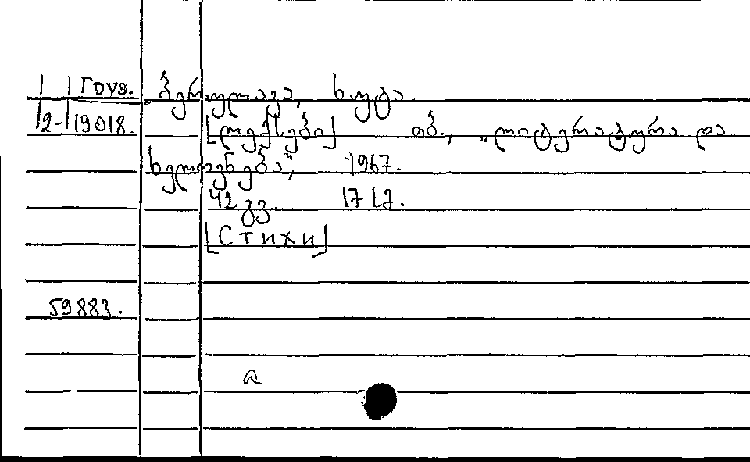 Груз. ბერულავა, ხუტა.
2-19018. [ლექსები] თბ., „ლიტერატურა და
ხელოვნება“, 1967.
42 გვ. 17 სმ.
[Стихи]
59883.
a